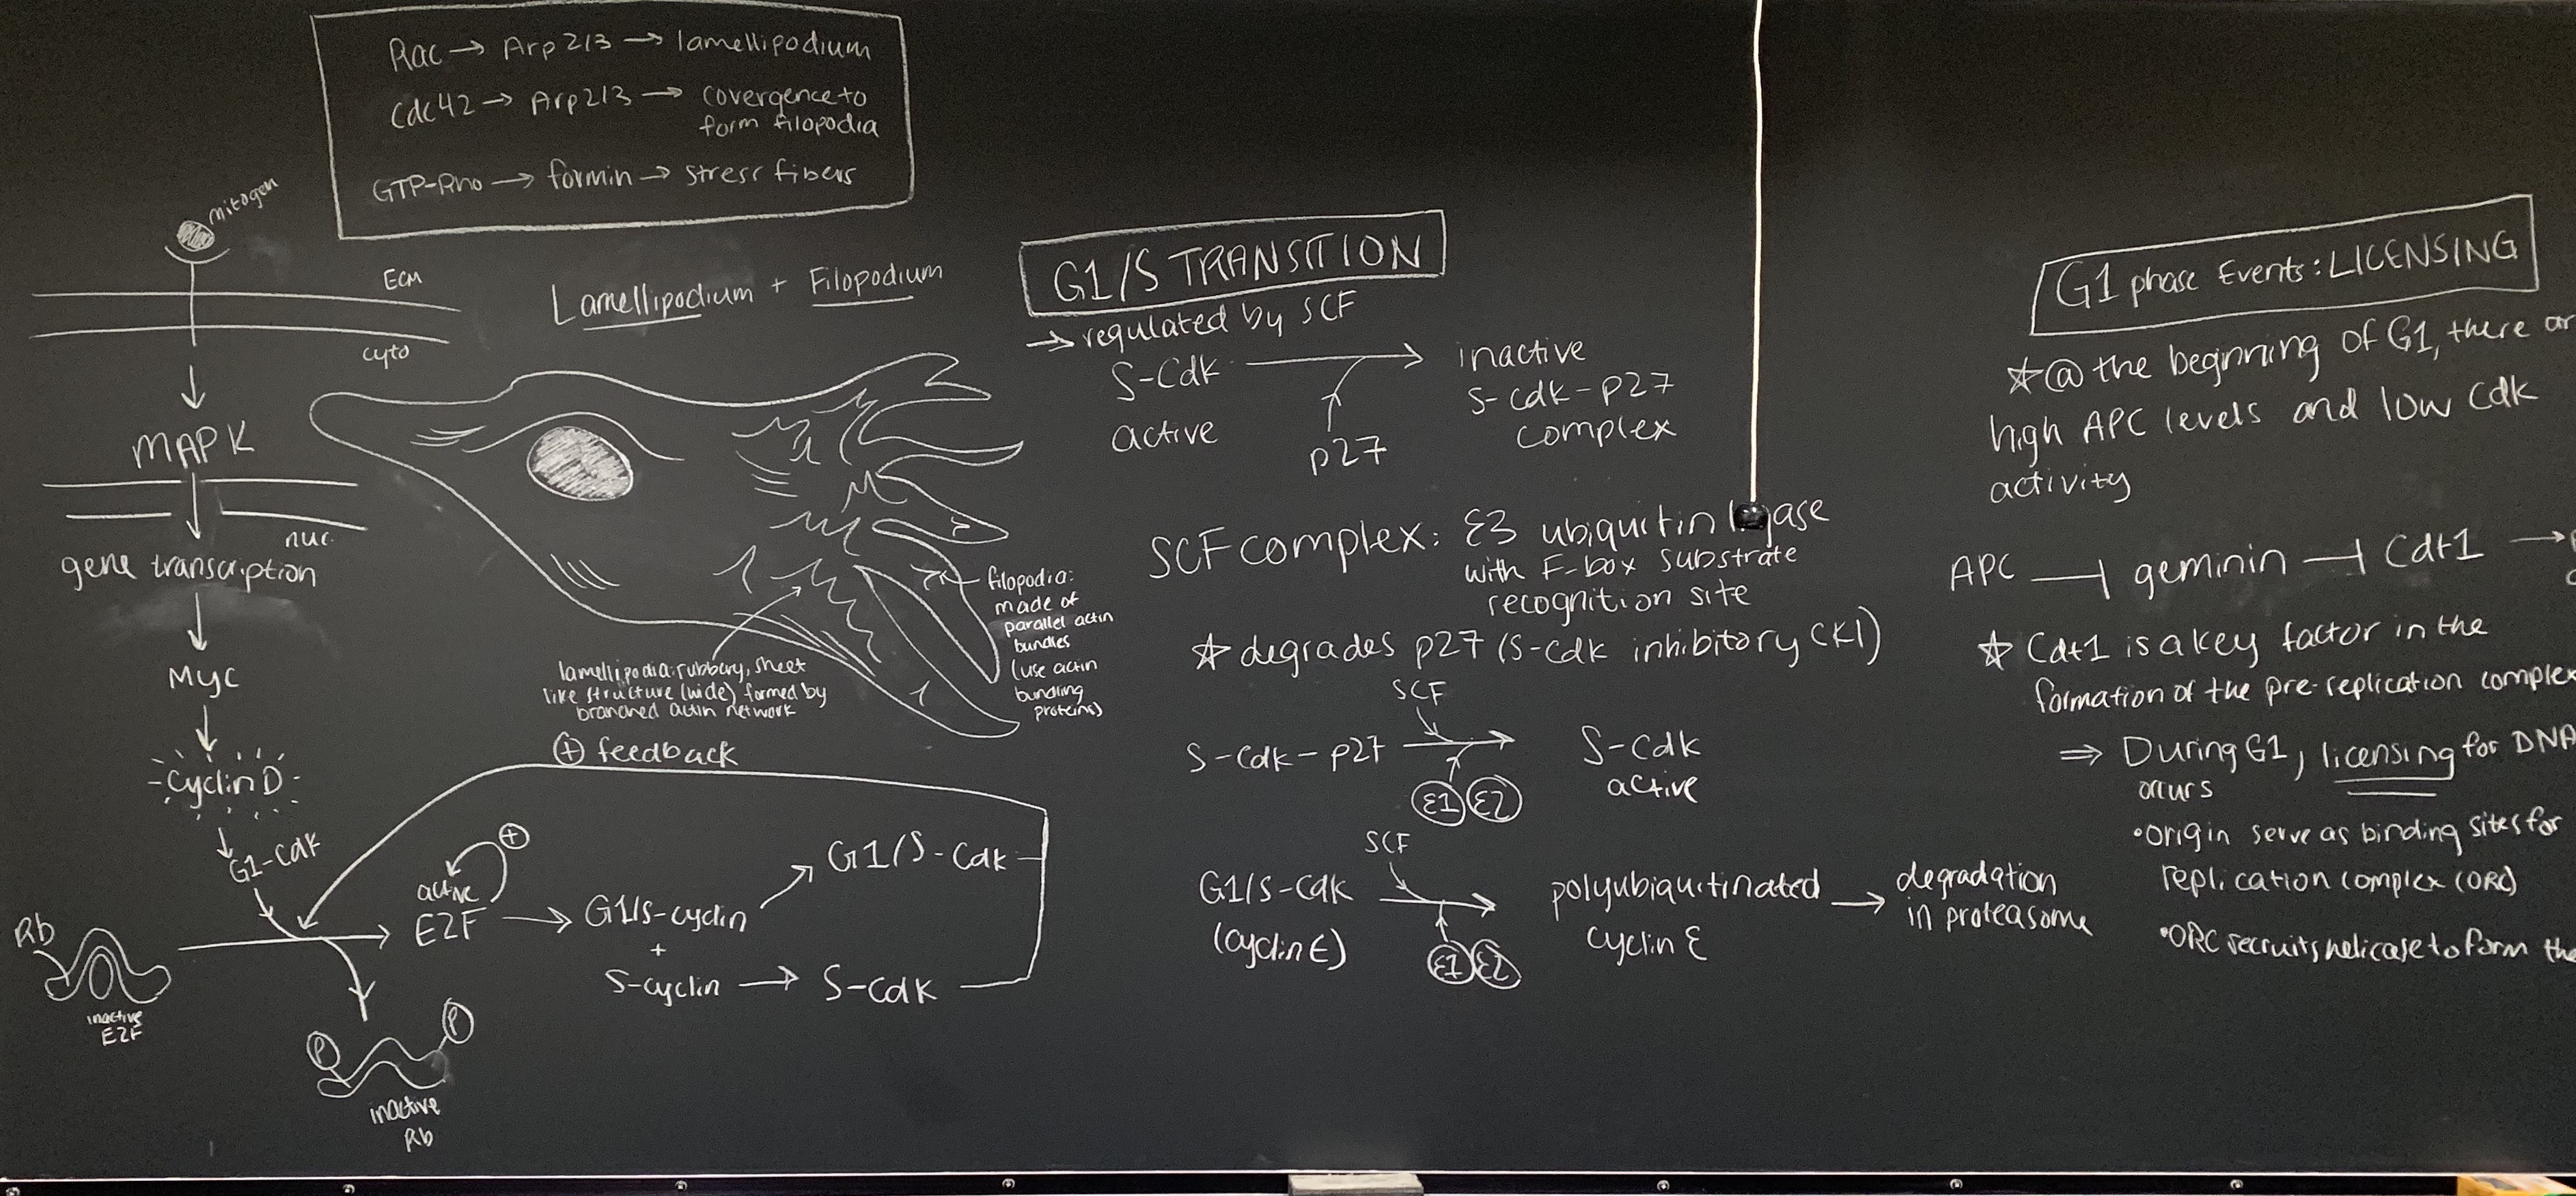 Rac → Arp 2/3 → lamellipodium
Cdc42 → Arp2/3 → covergence to
form filopodia
GTP-Rho → formin → stress fibers
mitogen
ECM
cyto
MAPK
nuc.
gene transcription
Myc
Cyclin D
G1-Cdk
Rb
inactive
E2F
active
E2F
+
P
P
inactive
Rb
G1/S-cyclin
+
S-cyclin → S-Cdk
G1/S-Cdk
+ feedback
Lamellipodium + Filopodium
filopodia:
made of
parallel actin
bundles
(use actin
bundling
proteins)
lamellipodia: rubbery, sheet
like structure (wide) formed by
branched actin network
G1/S TRANSITION
→ regulated by SCF
S-Cdk
active
p27
inactive
S-Cdk-p27
complex
SCF complex: E3 ubiquitin
with F-box substrate
recognition site
☆ degrades p27 (S-Cdk inhibitory CKI)
SCF
S-Cdk-p27
E1 E2
S-Cdk
active
SCF
G1/S-Cdk
(cyclin E)
E1 E2
polyubiquitinated
cyclin E
→ degradation
in proteasome
G1 phase Events: LICENSING
☆ @ the beginning of G1, there
high APC levels and low Cdk
activity
APC ⊣ geminin ⊣ Cdt1 →
☆ Cdt1 is a key factor in the
formation of the pre-replication complex
⇒ During G1, licensing for DNA
occurs
• Origin serve as binding sites for
replication complex (ORC)
• ORC recruits helicase to form the